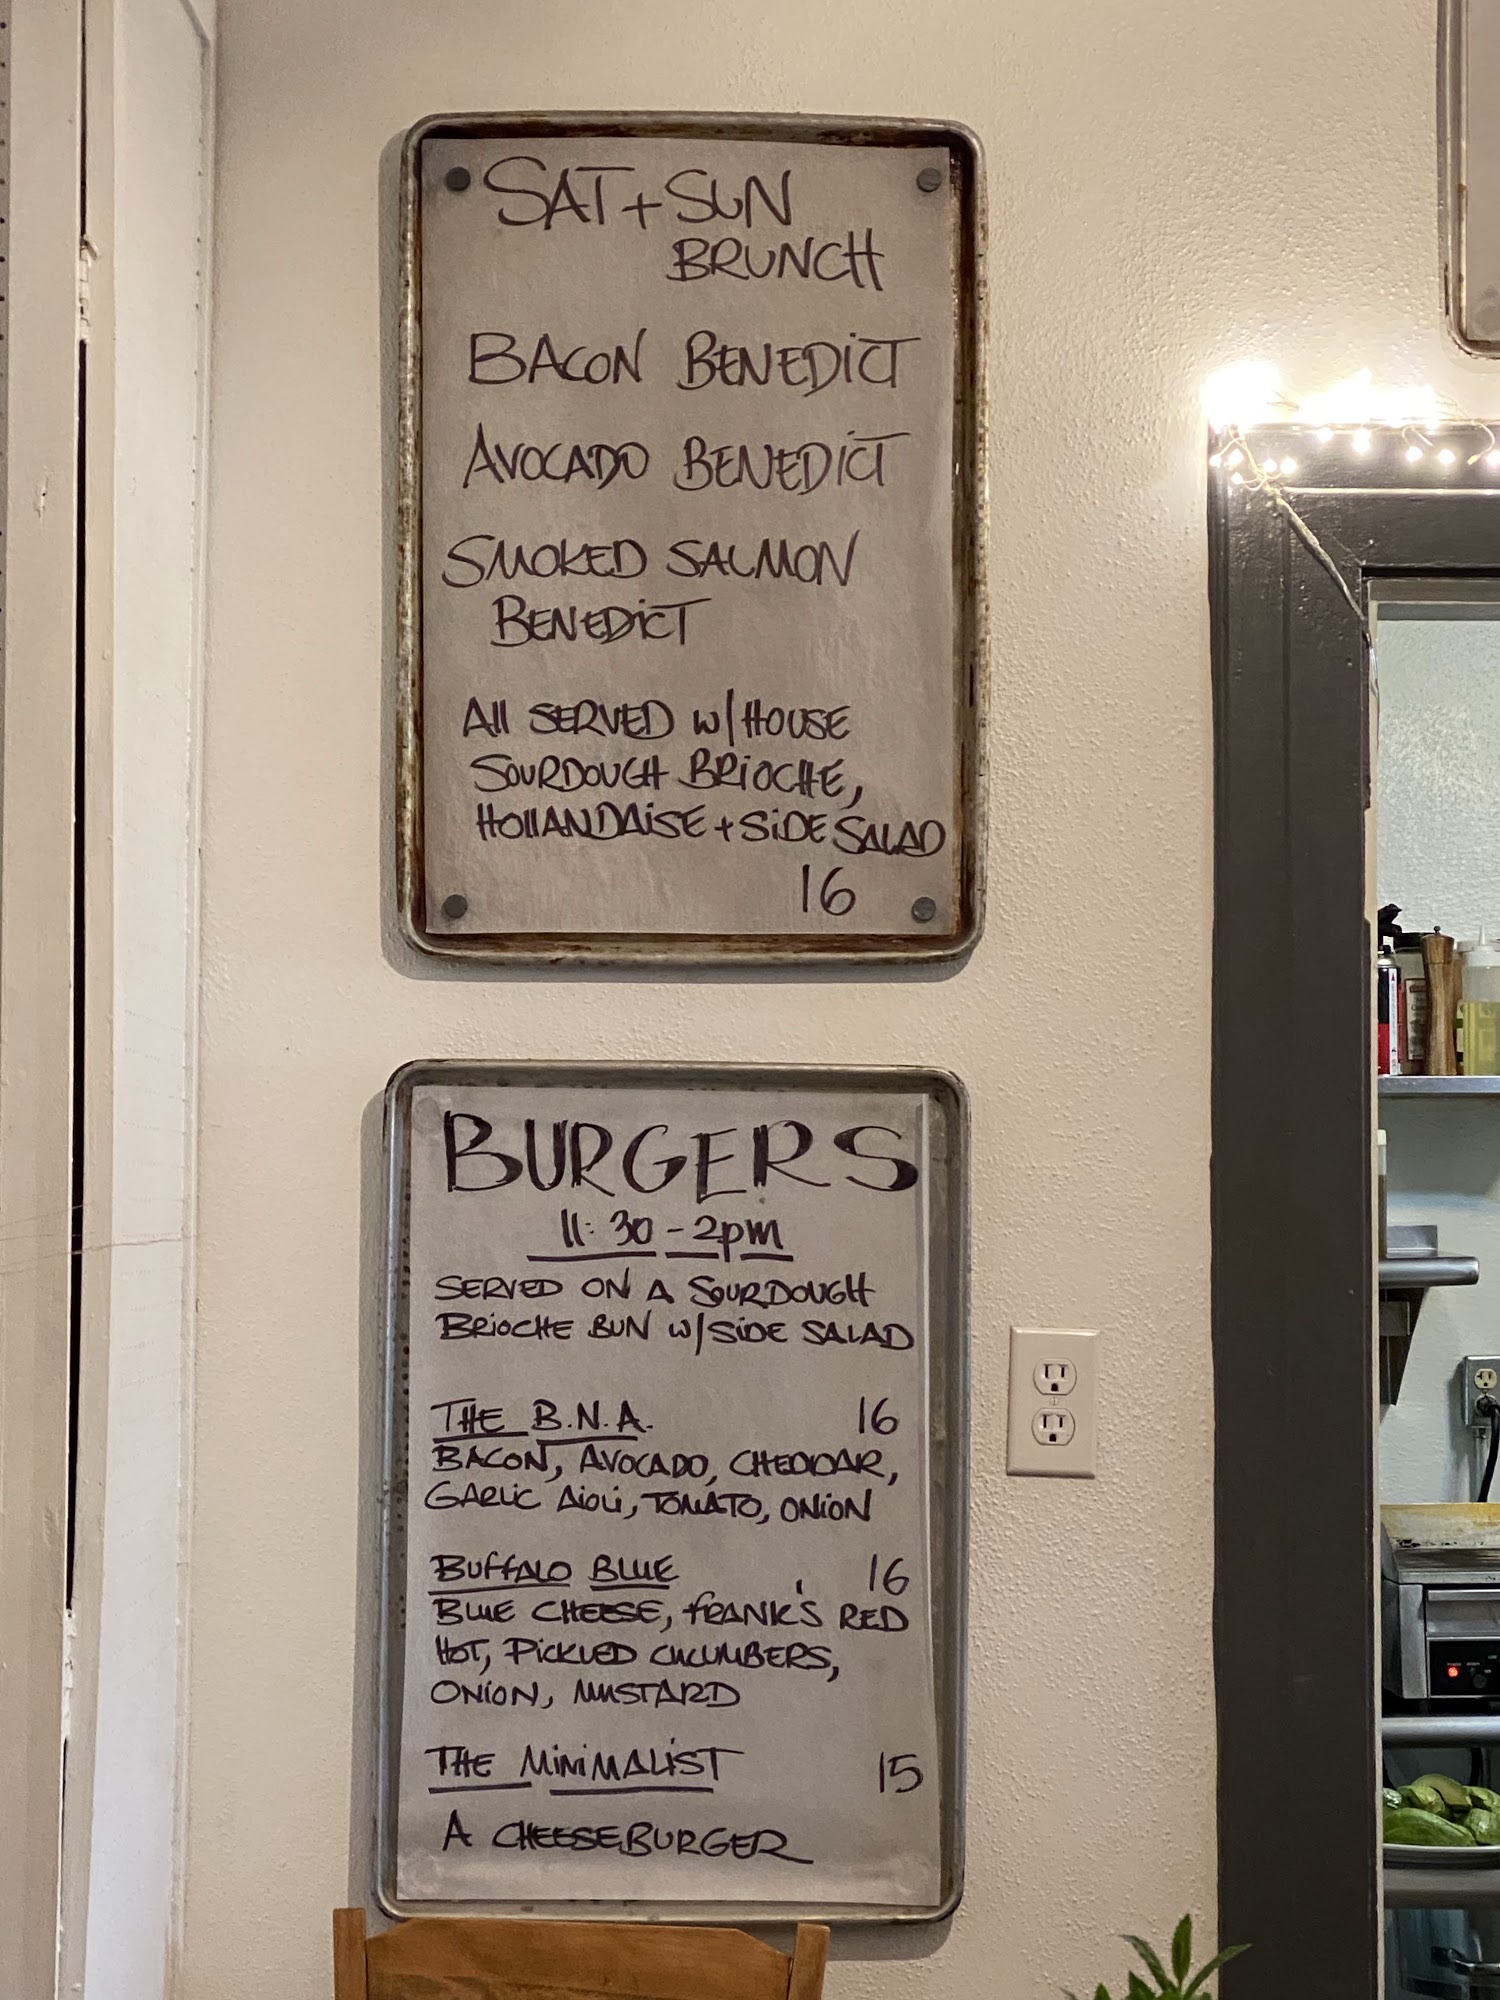 SAT + SUN
BRUNCH
BACON BENEDICT
AVOCADO BENEDICT
SMOKED SALMON
BENEDICT
All SERVED w/HOUSE
SOURDOUGH BRIOCHE,
HOllANDAISE + SIDE SALAD
16
BURGERS
11:30-2pm
SERVED ON A SOURDOUGH
BRIOCHE BUN W/SIDE SALAD
THE B.N.A. 16
BACON, AVOCADO, CHEDDAR,
GARLIC AIOLI, TOMATO, ONION
BUFFALO BLUE 16
BLUE CHEESE, FRANK'S RED
HOT, PICKLED CUCUMBERS,
ONION, MUSTARD
THE MINIMALIST 15
A CHEESEBURGER